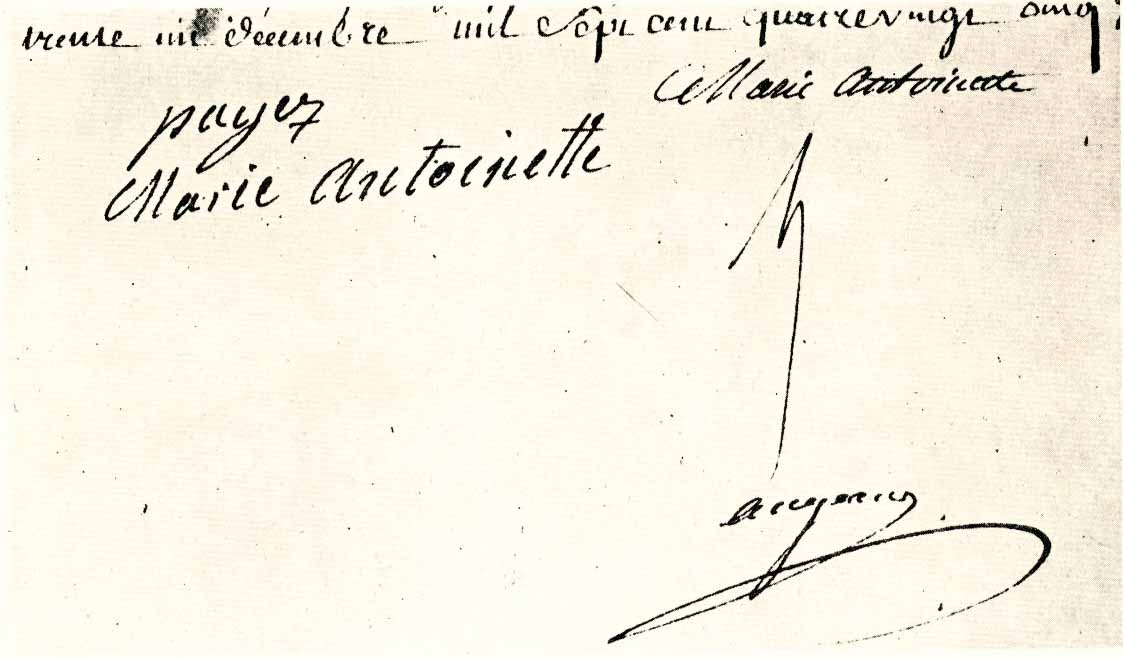 trente un décembre mil Sept cent quatrevingt cinq
Marie Antoinette
payez
Marie Antoinette
augeard